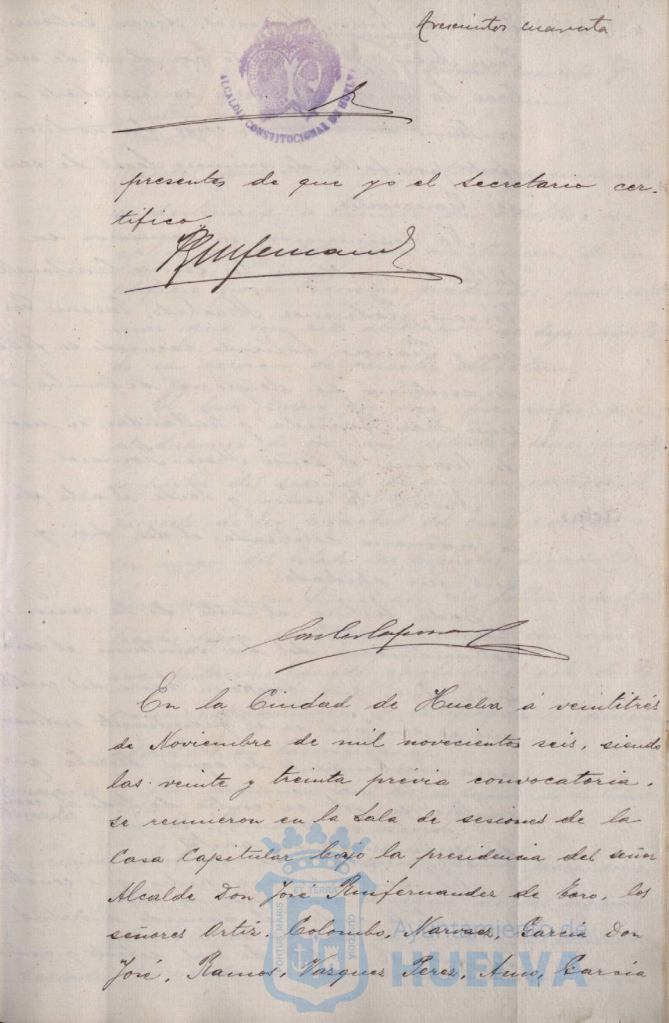 Trescientos cuarenta
ALCALDIA CONSTITUCIONAL DE HUELVA
presentes de que yo el Secretario cer-
tifico.
En la Ciudad de Huelva á veintitrés
de Noviembre de mil novecientos seis, siendo
las veinte y treinta prévia convocatoria,
se reunieron en la Sala de sesiones de la
Casa Capitular bajo la presidencia del señor
Alcalde Don José Ruifernandez de Toro, los
señores Ortiz, Colombo, Narvaez, García Don
José, Ramos, Vazquez Perez, Amo, García
PORTUS MARIS ET TERRAE CUSTODIA
Ayuntamiento de
HUELVA